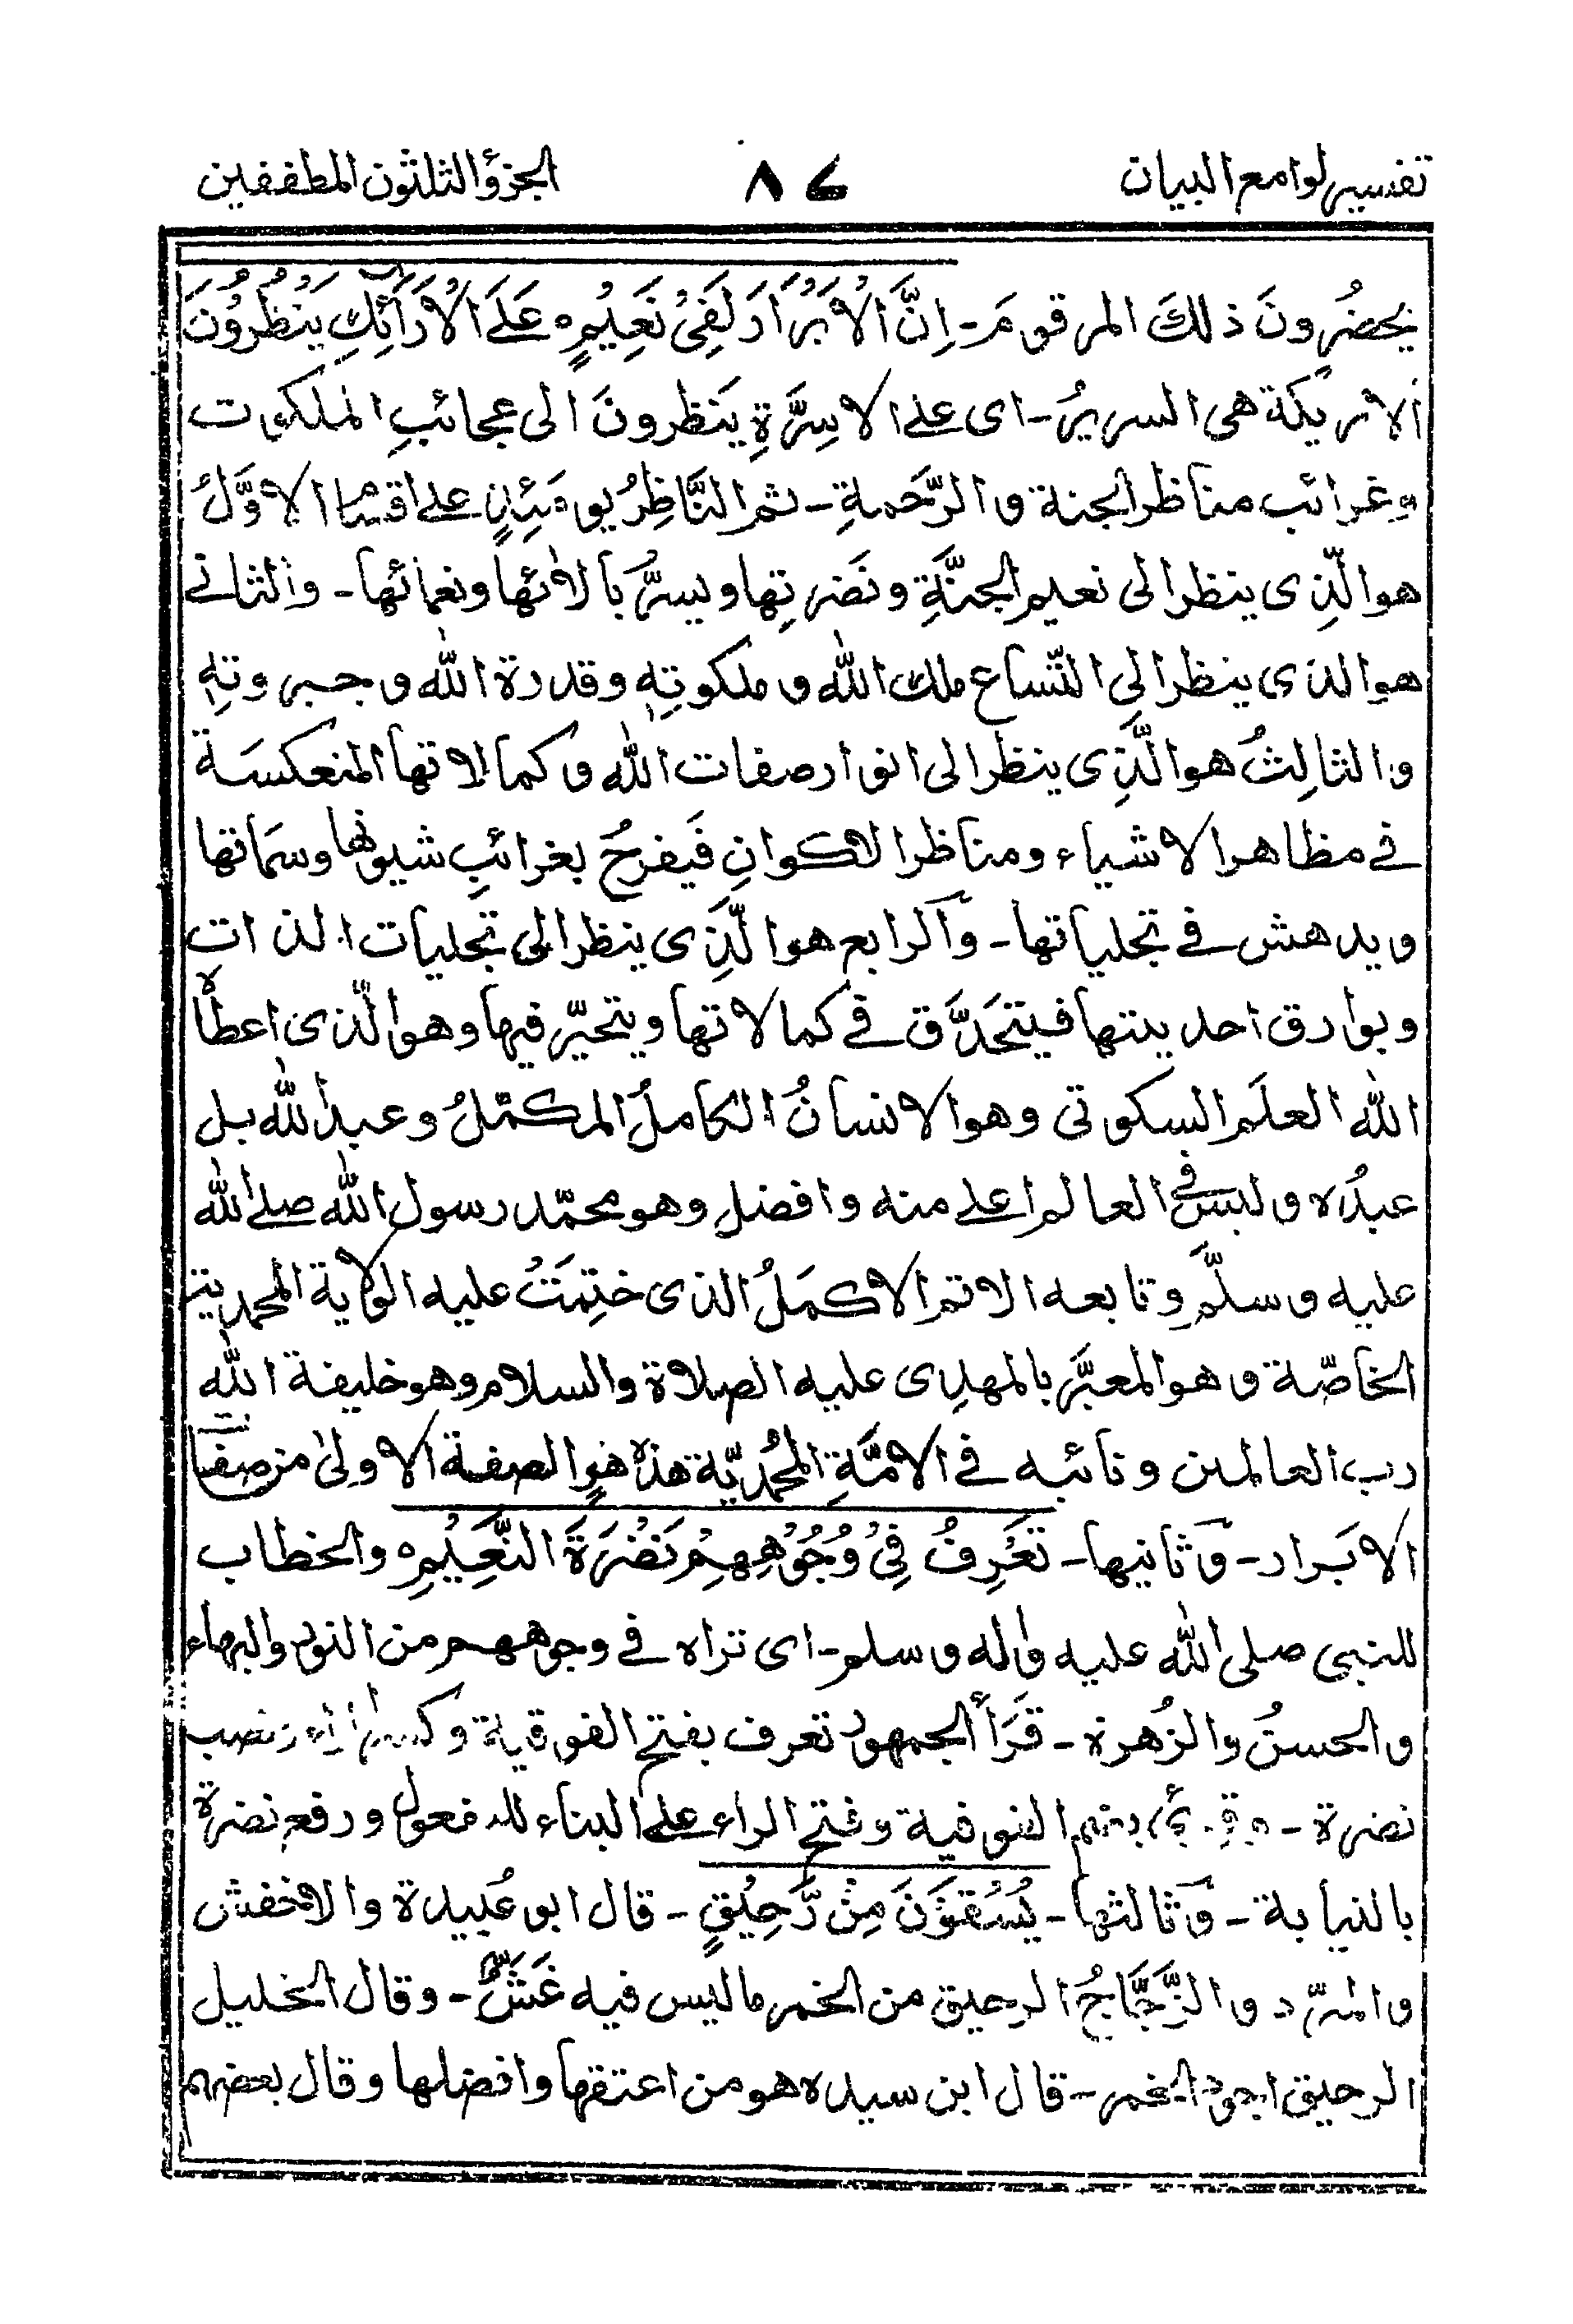 تفسير لوامع البيان ٨٤ الجزؤ الثلثون المطففين
يحضُرونَ ذلكَ المرقومَ ـ اِنَّ الْاَبْرَارَ لَفِيْ نَعِيْمٍ ٥ عَلَى الْاَرَآئِكِ يَنْظُرُوْنَ
الاريكة هى السريرُ ـ اى على الاسِرَّةِ يَنظرونَ الى عجائبِ الملكوت
وغرائب مناظر الجنة والرَّحمةِ ـ ثم النَّاظِرُ يومَئِنٍ على اقسام الاوَّلُ
هو الَّذِى ينظر الى نعيم الجنَّةِ ونَضرتِها ويسرُّ بآلائها ونعمائها ـ والثانى
هو الذى ينظر الِى اتّساع ملك الله وملكوتِهٖ وقدرة الله وجبروتِهٖ
والثالِثُ هو الَّذِى ينظر الى انوار صفات الله وكمالاتها المنعكسَة
فى مظاهر الاشياء ومناظر الاكوانِ فَيفرحُ بغرائبِ شيونها وسمَاتها
ويدهش فى تجلياتها ـ وَالرابع هو الَّذِى ينظر الى تجليات الذات
وبوارق احديتها فيتحَدَّق فى كمالاتها ويتحيّر فيها وهو الّذى اعطاه
الله العلَم السكوتى وهو الانسانُ الكاملُ المكمّلُ وعبد الله بل
عبدُه وليس فى العالم اعلى منه وافضل وهو محمّد رسول الله صلى الله
عليه وسلَّم وتابعه الاتم الاكمَلُ الذى ختِمَتْ عليه الولاية المحمدية
الخاصّة وهو المعبَّر بالمهدِى عليه الصلاة والسلام وهو خليفة الله
رب العالمين ونائبه فى الامَّةِ المحُمديّة هذه هى الصفة الاولىٰ من صفات
الابَرار ـ وثانيها ـ تَعْرِفُ فِيْ وُجُوْهِهِمْ نَضْرَةَ النَّعِيْمِ ٥ والخطاب
للنبى صلى الله عليه وآله وسلم ـ اى تراه فى وجوههم من النور والبهاء
والحسنُ والزُهرة ـ قَرَأ الجمهور تعرف بفتح الفوقية وكسر الراء ونصب
نضرة ـ وقرئ بضم الفوفية وفتح الراء على البناء للمفعول ورفع نضرة
بالنيابة ـ وثالثها ـ يُسْقَوْنَ مِنْ رَّحِيْقٍ ـ قال ابو عُبيدة والاخفش
والمبرّد والزَّجَّاجُ الرحيق من الخمر ما ليس فيه غَشٌّ ـ وقال الخليل
الرحيق اجود الخمر ـ قال ابن سيده هو من اعتقها وافضلها وقال بعضهم